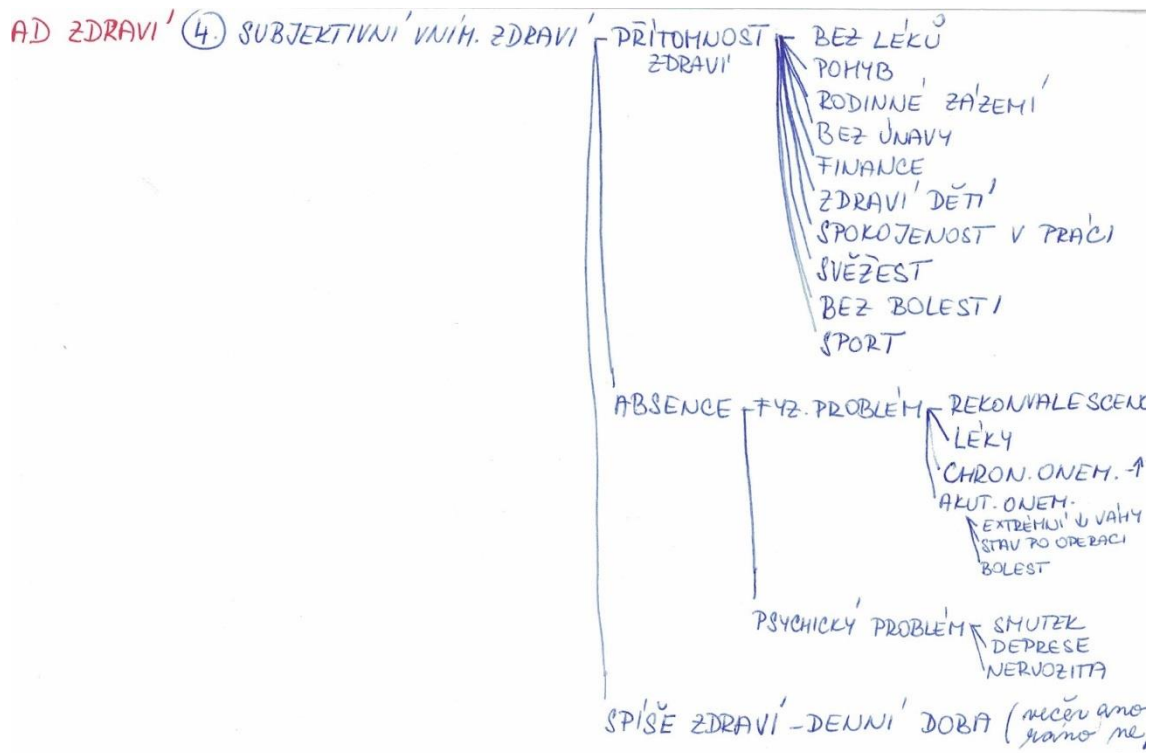 AD ZDRAVÍ 4. SUBJEKTIVNÍ VNÍM. ZDRAVÍ - PŘÍTOMNOST - BEZ LÉKŮ
ZDRAVÍ
POHYB
RODINNÉ ZÁZEMÍ
BEZ ÚNAVY
FINANCE
ZDRAVÍ DĚTÍ
SPOKOJENOST V PRÁCI
SVĚŽEST
BEZ BOLESTI
SPORT
ABSENCE - FYZ. PROBLÉM - REKONVALESCENC
LÉKY
CHRON. ONEM. - ↑
AKUT. ONEM.
EXTRÉMNÍ ↓ VÁHY
STAV PO OPERACI
BOLEST
PSYCHICKÝ PROBLÉM - SMUTEK
DEPRESE
NERVOZITA
SPÍŠE ZDRAVÍ - DENNÍ DOBA (večer ano
ráno ne,